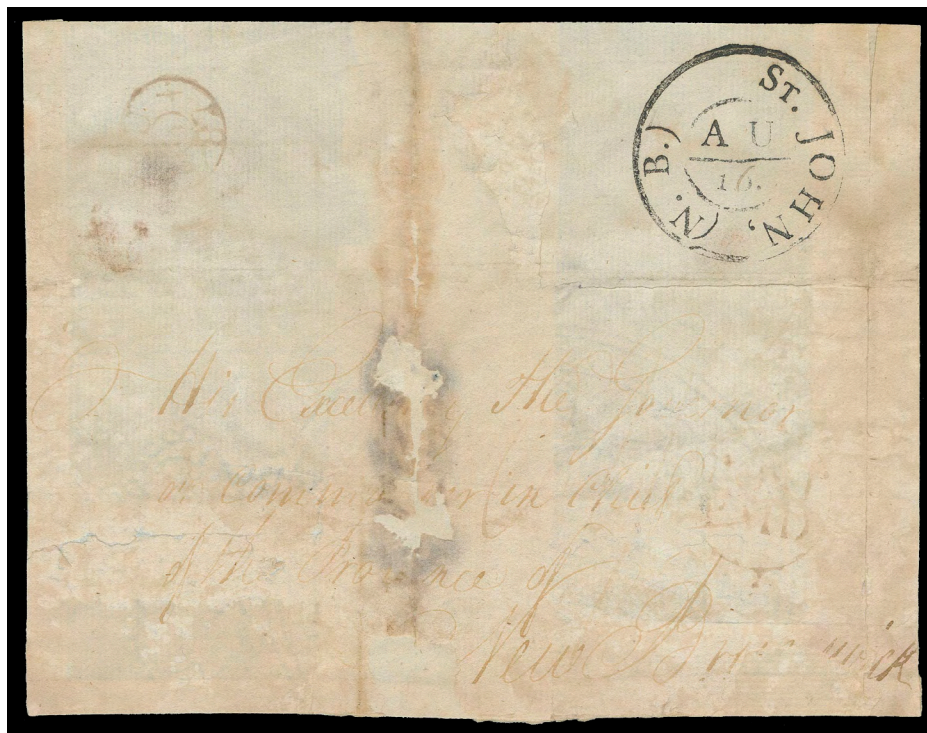 ST. JOHN, (N. B.)
A U
16.
His Excellency the Governor
or commander in chief
of the Province of
New Brunswick